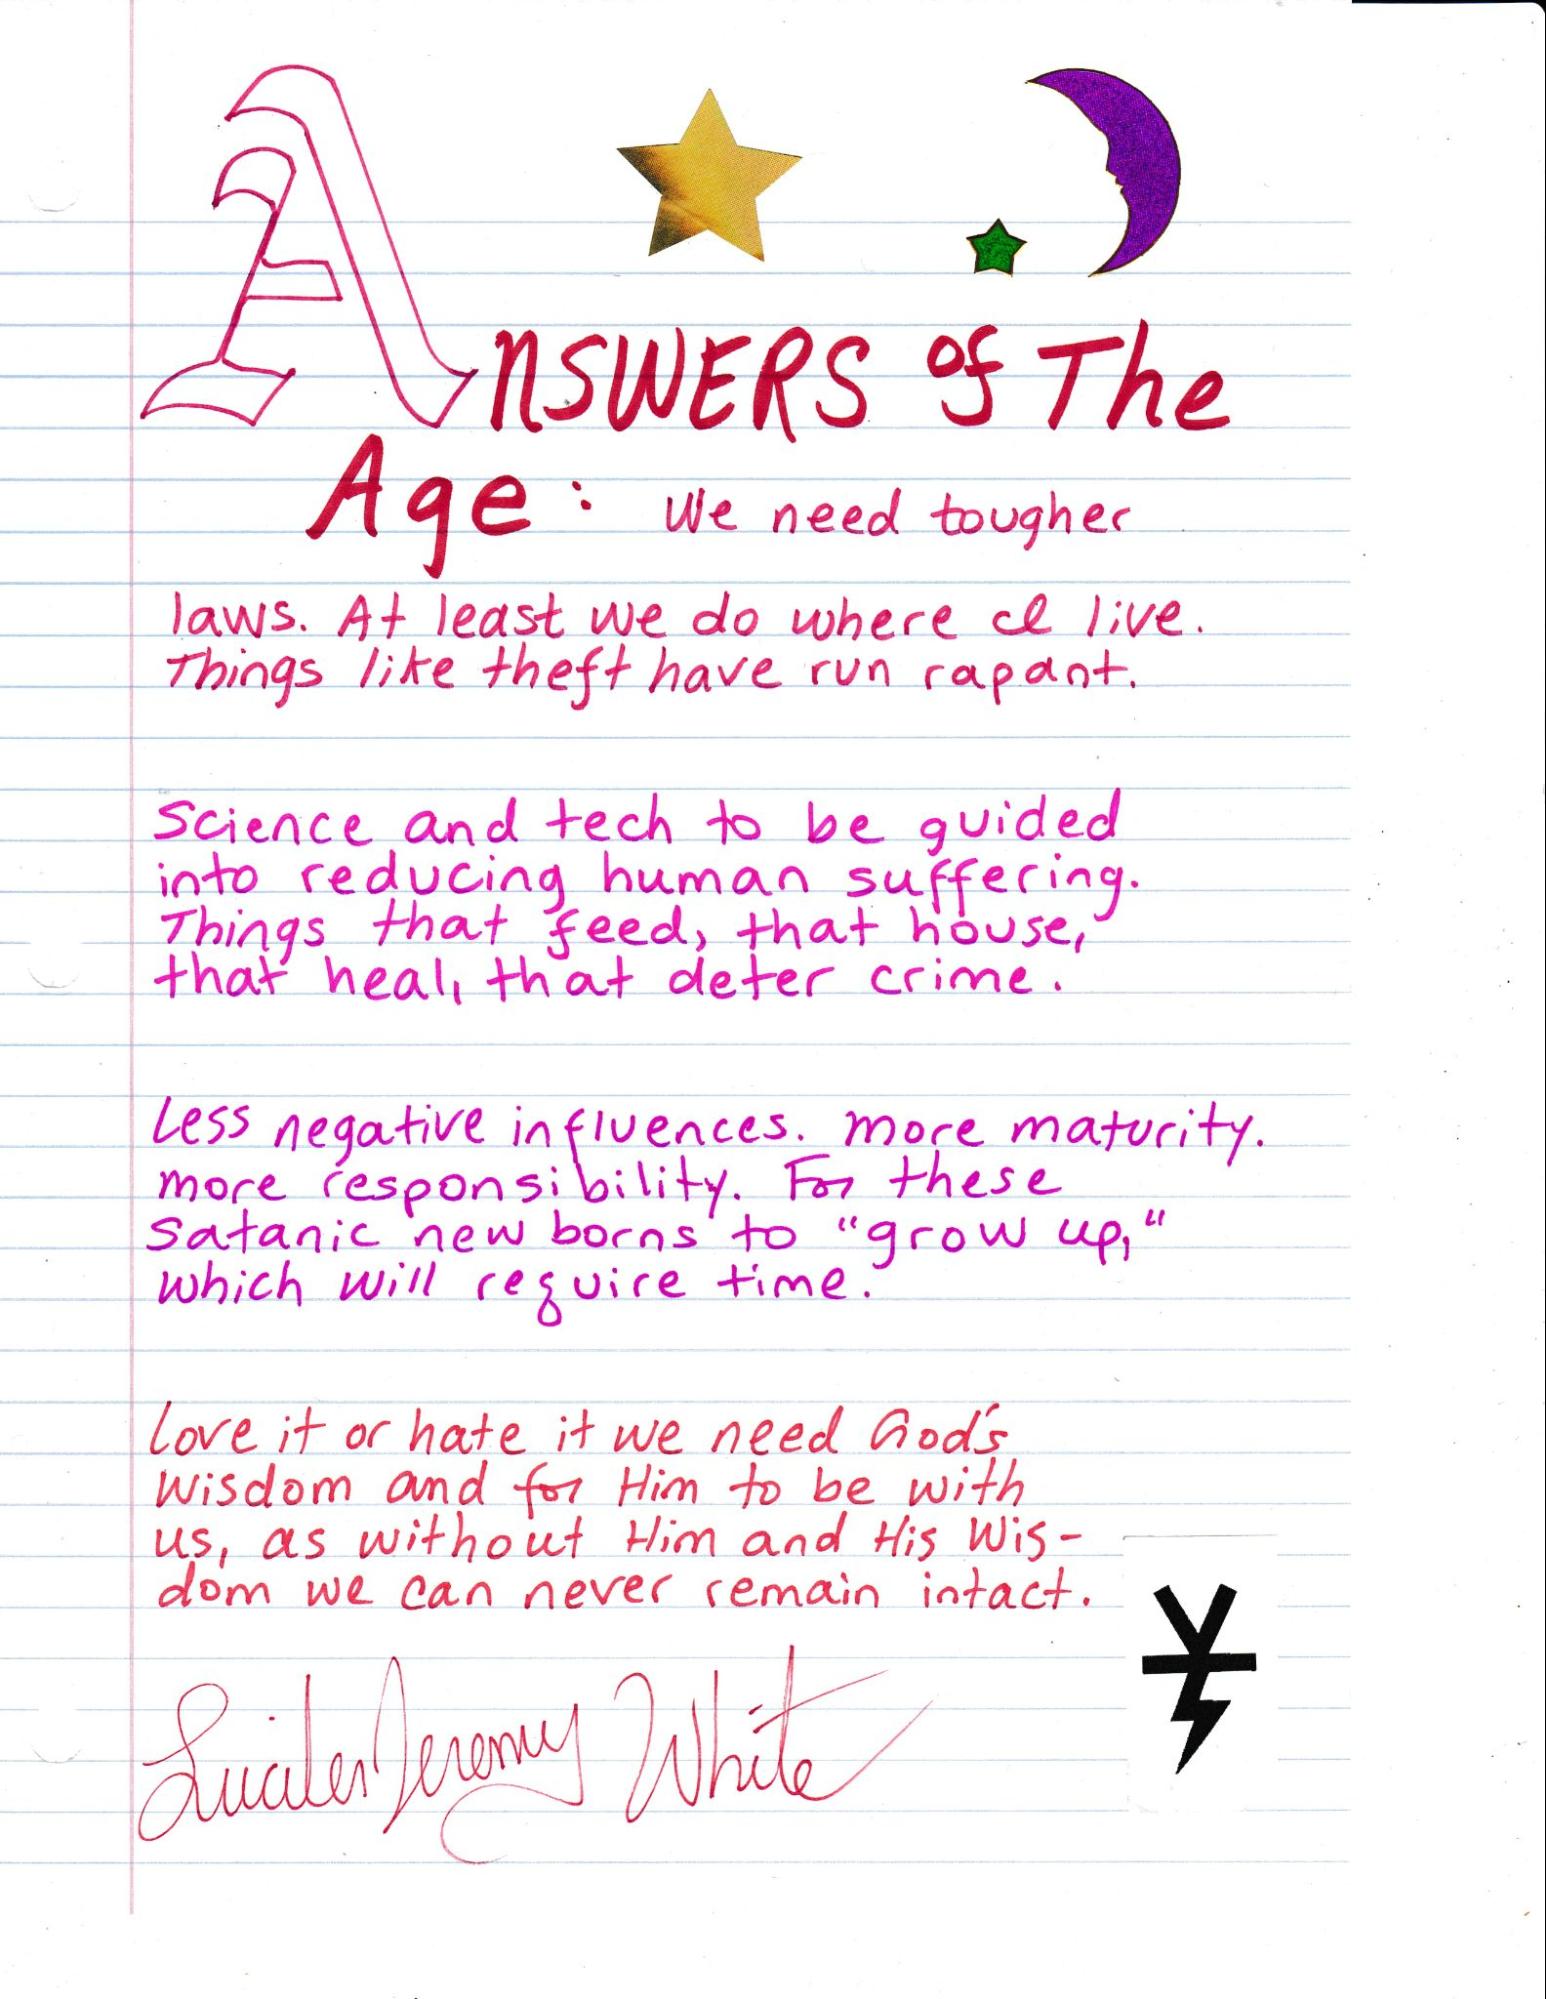 ANSWERS of The
Age: We need tougher
laws. At least we do where I live.
Things like theft have run rapant.
Science and tech to be guided
into reducing human suffering.
Things that feed, that house,
that heal, that deter crime.
Less negative influences. more maturity.
more responsibility. For these
Satanic new borns to "grow up,"
which will require time.
Love it or hate it we need God's
Wisdom and for Him to be with
us, as without Him and His Wis-
dom we can never remain intact.
Jeremy White